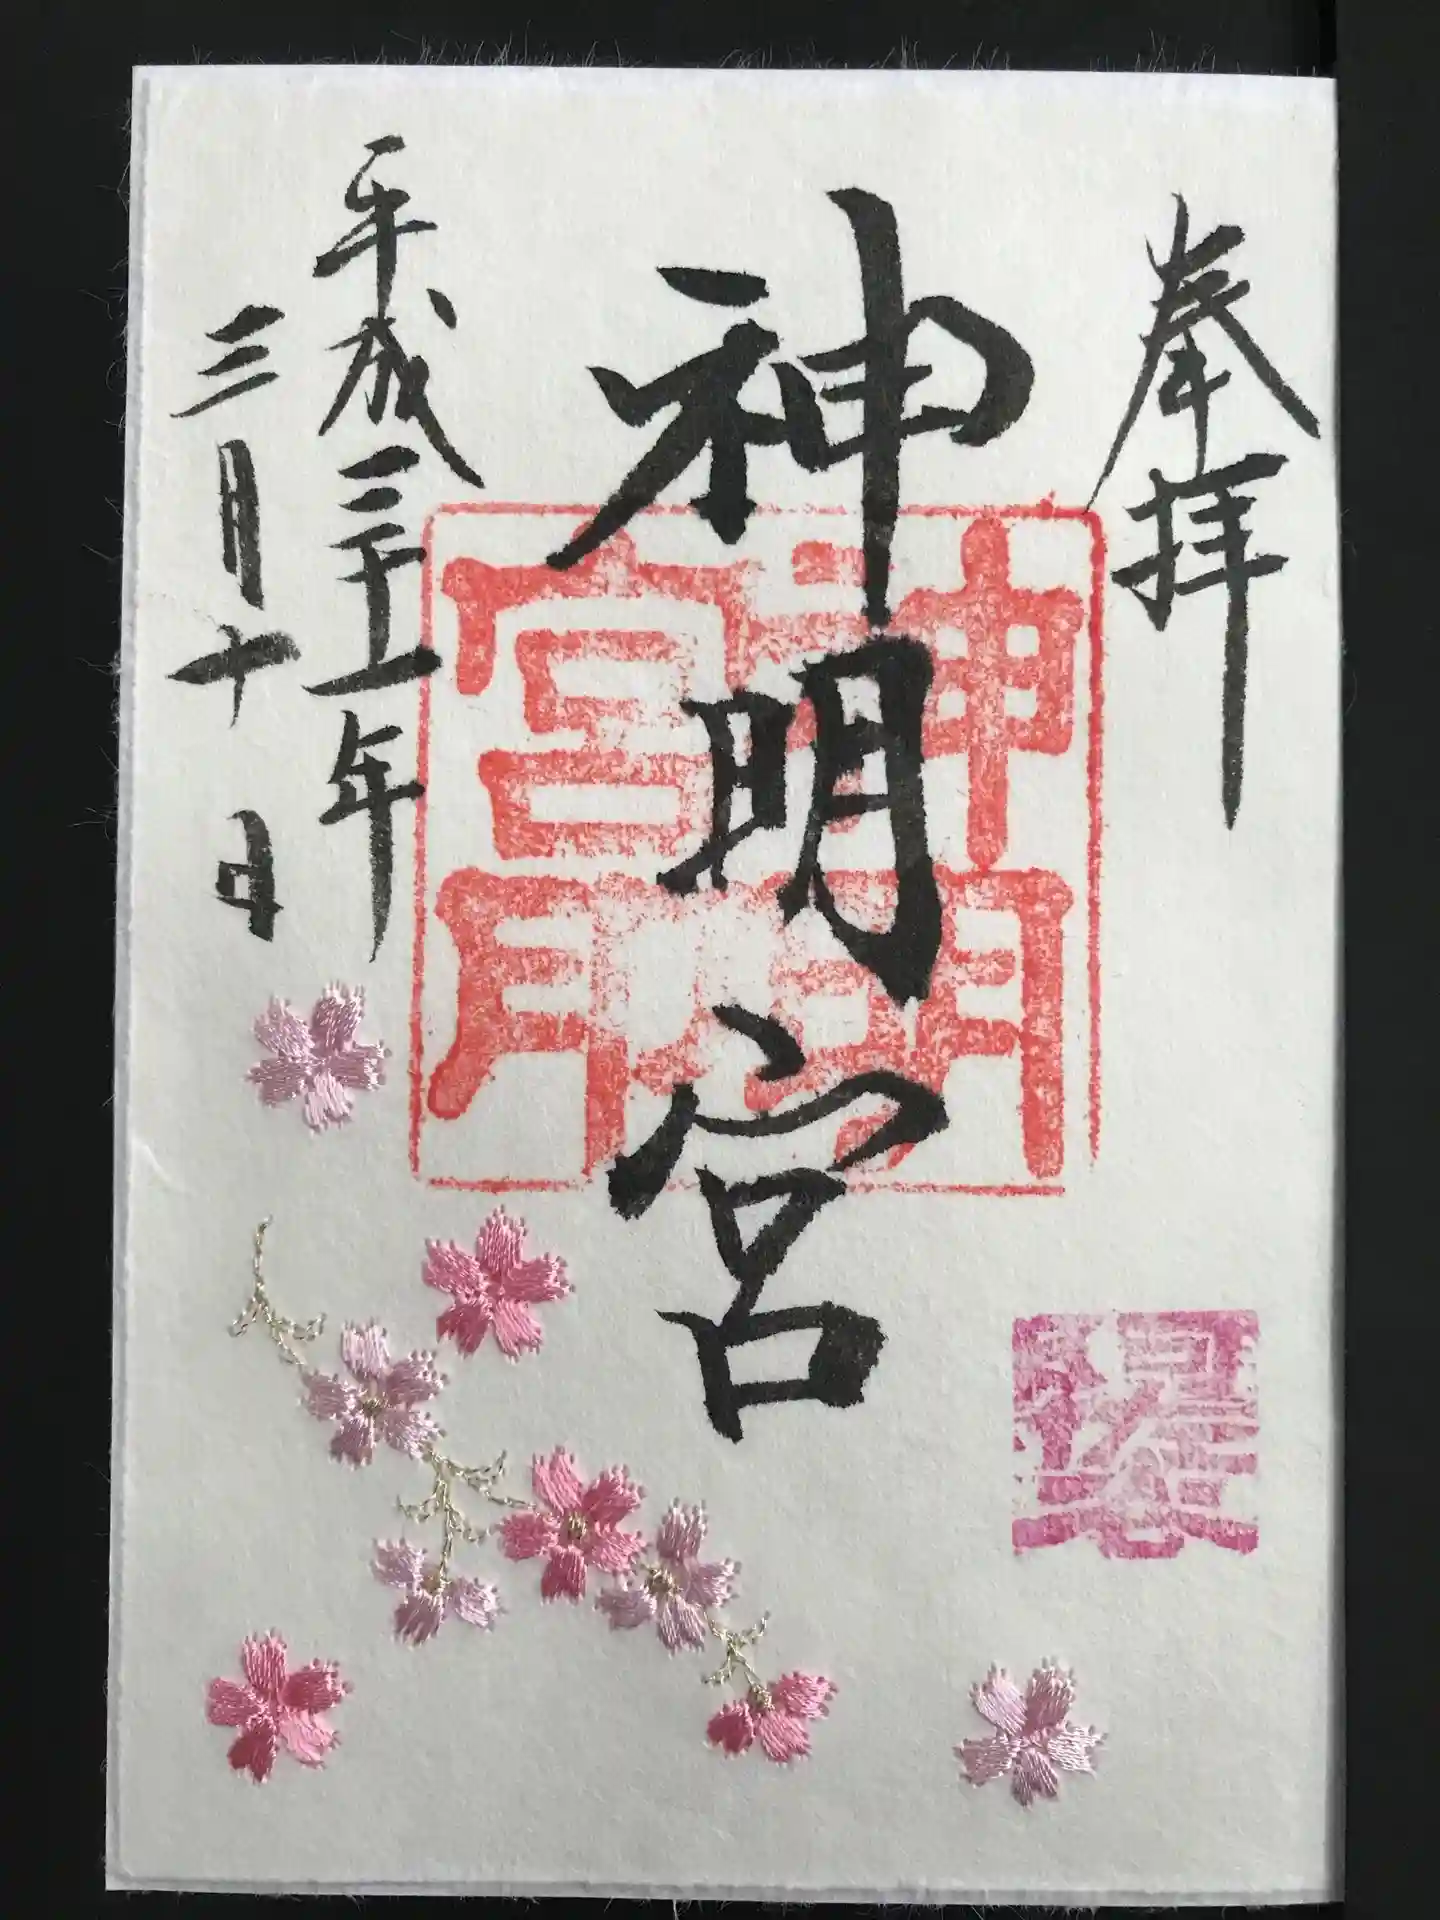 奉拝
神明宮
神明宮印
平成三十一年
三月十日